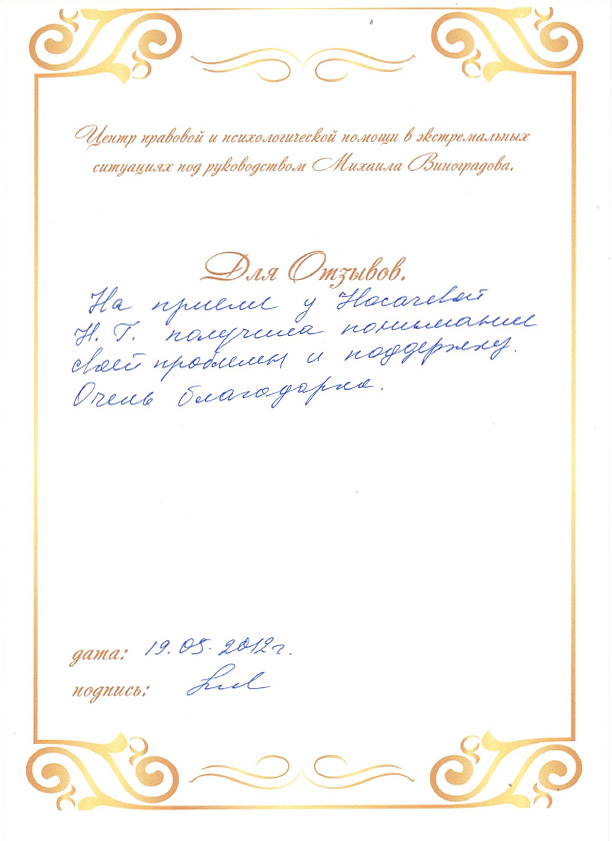 Центр правовой и психологической помощи в экстремальных
ситуациях под руководством Михаила Виноградова.
Для Отзывов.
На приеме у Носачевой
Н. Г. получила понимание
своей проблемы и поддержку.
Очень благодарна.
дата: 19.05.2012г.
подпись: